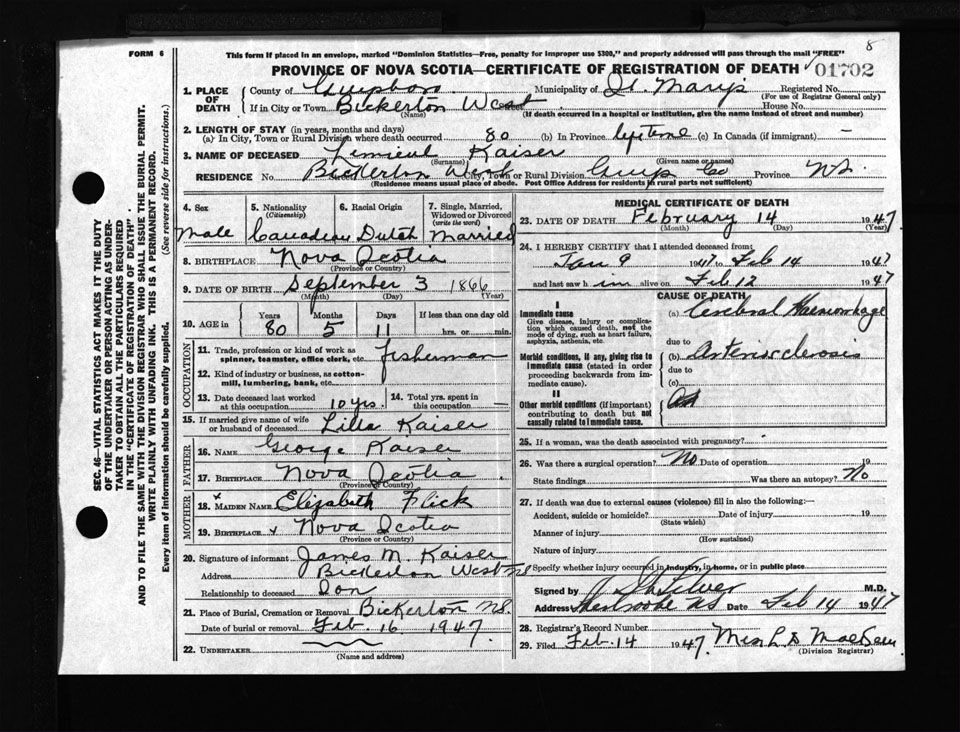 8
FORM 6
This form if placed in an envelope, marked "Dominion Statistics—Free, penalty for improper use $300," and properly addressed will pass through the mail "FREE"
PROVINCE OF NOVA SCOTIA—CERTIFICATE OF REGISTRATION OF DEATH 01702
SEC. 46—VITAL STATISTICS ACT MAKES IT THE DUTY
OF THE UNDERTAKER OR PERSON ACTING AS UNDER-
TAKER TO OBTAIN ALL THE PARTICULARS REQUIRED
IN THE "CERTIFICATE OF REGISTRATION OF DEATH".
AND TO FILE THE SAME WITH THE DIVISION REGISTRAR WHO SHALL ISSUE THE BURIAL PERMIT.
WRITE PLAINLY WITH UNFADING INK. THIS IS A PERMANENT RECORD.
Every item of information should be carefully supplied. (See reverse side for instructions.)
1. PLACE OF DEATH
County of Municipality of St. Mary's Registered No.
(For use of Registrar General only)
If in City or Town Bickerton West House No.
(Name) (If death occurred in a hospital or institution, give the name instead of street and number)
2. LENGTH OF STAY (in years, months and days)
(a) In City, Town or Rural Division where death occurred 80 (b) In Province lifetime (c) In Canada (if immigrant) —
3. NAME OF DECEASED Kaiser
(Surname) (Given name or names)
RESIDENCE No. Bickerton West Street City, Town or Rural Division Guys Co Province N.S.
(Residence means usual place of abode. Post Office Address for residents in rural parts not sufficient)
4. Sex 5. Nationality (Citizenship) 6. Racial Origin 7. Single, Married, Widowed or Divorced (write the word)
Male Canadian Dutch Married
8. BIRTHPLACE Nova Scotia
(Province or Country)
9. DATE OF BIRTH September 3 1866
(Month) (Day) (Year)
10. AGE in Years Months Days If less than one day old
80 5 11 hrs. or min.
OCCUPATION
11. Trade, profession or kind of work as spinner, teamster, office clerk, etc. fisherman
12. Kind of industry or business, as cotton-mill, lumbering, bank, etc.
13. Date deceased last worked at this occupation 10 yrs. 14. Total yrs. spent in this occupation —
15. If married give name of wife or husband of deceased Lilla Kaiser
FATHER
16. NAME George Kaiser
17. BIRTHPLACE Nova Scotia
(Province or Country)
MOTHER
18. MAIDEN NAME Elizabeth Flick
19. BIRTHPLACE Nova Scotia
(Province or Country)
20. Signature of informant James M. Kaiser
Address Bickerton West NS
Relationship to deceased Son
21. Place of Burial, Cremation or Removal Bickerton N.S.
Date of burial or removal Feb. 16 1947
22. UNDERTAKER
(Name and address)
MEDICAL CERTIFICATE OF DEATH
23. DATE OF DEATH February 14 1947
(Month) (Day) (Year)
24. I HEREBY CERTIFY that I attended deceased from
Jan 9 1947 to Feb 14 1947
and last saw h im alive on Feb 12 1947
CAUSE OF DEATH
I
Immediate cause
Give disease, injury or complication which caused death, not the mode of dying, such as heart failure, asphyxia, asthenia, etc.
(a) Cerebral Haemorrhage
due to
Morbid conditions, if any, giving rise to immediate cause (stated in order proceeding backwards from immediate cause).
(b) Arteriosclerosis
due to
(c)
II
Other morbid conditions (if important) contributing to death but not causally related to immediate cause.
25. If a woman, was the death associated with pregnancy?
26. Was there a surgical operation? No Date of operation 19
State findings Was there an autopsy? No
27. If death was due to external causes (violence) fill in also the following:—
Accident, suicide or homicide? Date of injury 19
(State which)
Manner of injury
(How sustained)
Nature of injury
Specify whether injury occurred in industry, in home, or in public place
Signed by M.D.
Address Sherbrooke NS Date Feb 14 1947
28. Registrar's Record Number
29. Filed Feb. 14 1947
(Division Registrar)